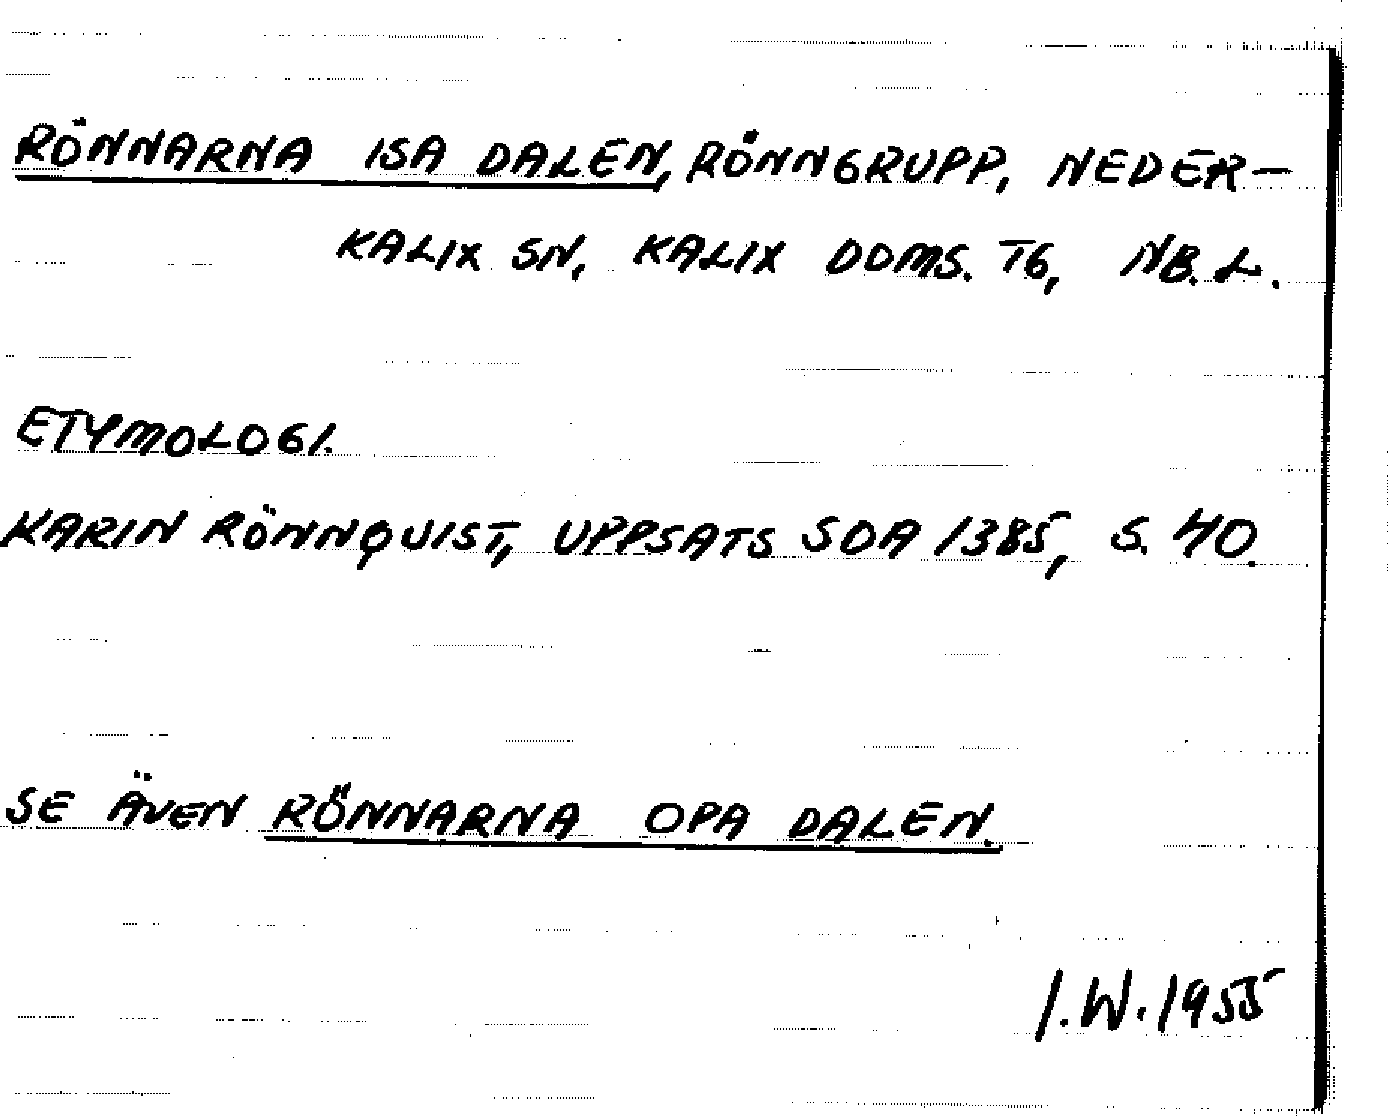 RÖNNARNA ISA DALEN, RÖNNGRUPP, NEDER-
KALIX SN, KALIX DOMS. TG, NB. L.
ETYMOLOGI.
KARIN RÖNNQUIST, UPPSATS SOA 1385, S. 40.
SE ÄVEN RÖNNARNA OPA DALEN.
I.W. 1955